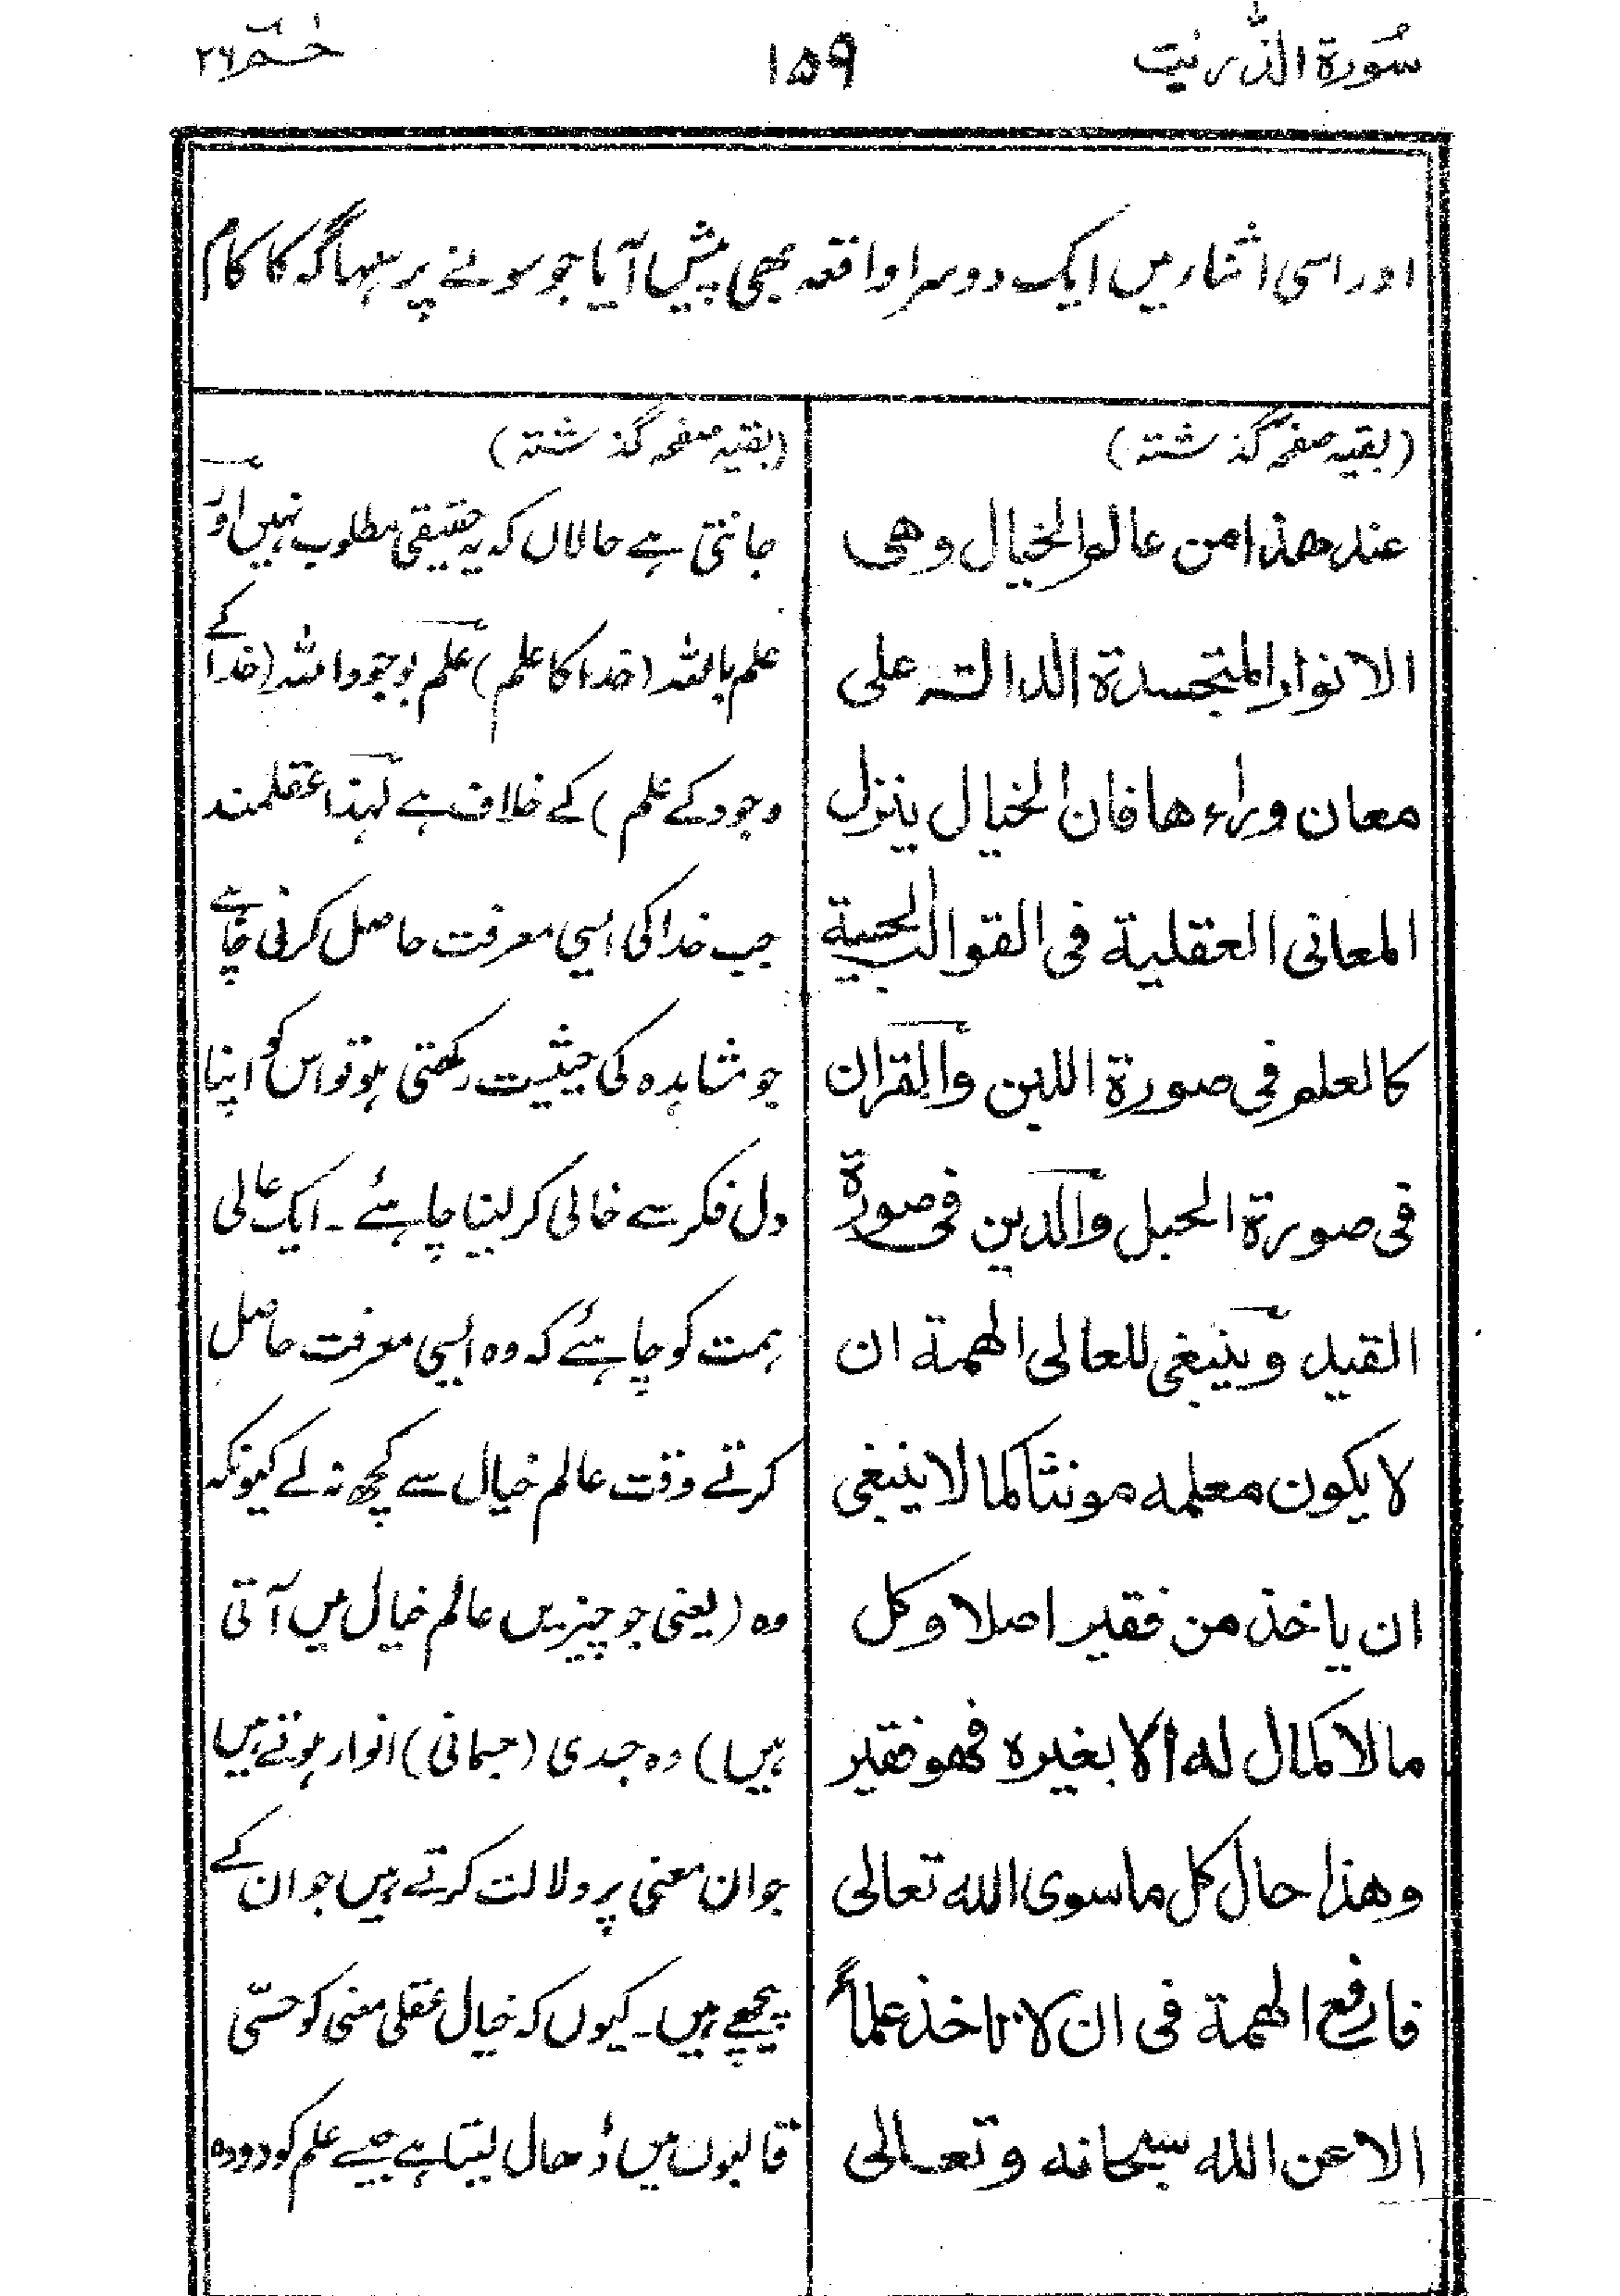 سُورۃ الذّٰریٰت
۱۵۹
حٰـمۤ ۲۶
اور اسی اثناء میں ایک دوسرا واقعہ بھی پیش آیا جو سونے پر سہاگہ کا کام
(بقیہ صفحہ گذشتہ)
عند هذا من عالم الخيال وهى
الانوار المتجسدة الدالة على
معان وراء ها فان الخيال ينزل
المعانى العقلية فى القوالب الحسية
كالعلم فى صورة اللبن والقران
فى صورة الحبل والدين فى صورة
القيد وينبغى للعالى الهمة ان
لا يكون معلمه مونثا كما لا ينبغى
ان ياخذ من فقير اصلا وكل
مالا كمال له الا بغيره فهو فقير
وهذا حال كل ما سوى الله تعالى
فارفع الهمة فى ان لا تاخذ علماً
الا عن الله سبحانه وتعالى
(بقیہ صفحہ گذشتہ)
جانتی ہے حالاں کہ یہ حقیقی مطلوب نہیں اور
علم باللہ (خدا کا علم) علم بوجود اللہ (خدا کے
وجود کے علم) کے خلاف ہے لہٰذا عقلمند
جب خدا کی ایسی معرفت حاصل کرنی چاہے
جو مشاہدہ کی حیثیت رکھتی ہو تو اس کو اپنا
دل فکر سے خالی کر لینا چاہئے ۔ ایک عالی
ہمت کو چاہئے کہ وہ ایسی معرفت حاصل
کرتے وقت عالم خیال سے کچھ نہ لے کیونکہ
وہ (یعنی جو چیزیں عالم خیال میں آتی
ہیں) وہ جسدی (جسمانی) انوار ہوتے ہیں
جو ان معنی پر دلالت کرتے ہیں جو ان کے
پیچھے ہیں ۔ کیوں کہ خیال عقلی معنی کو حسّی
قالبوں میں ڈھال لیتا ہے جیسے علم کو دودھ